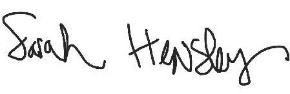 Sarah Hensley